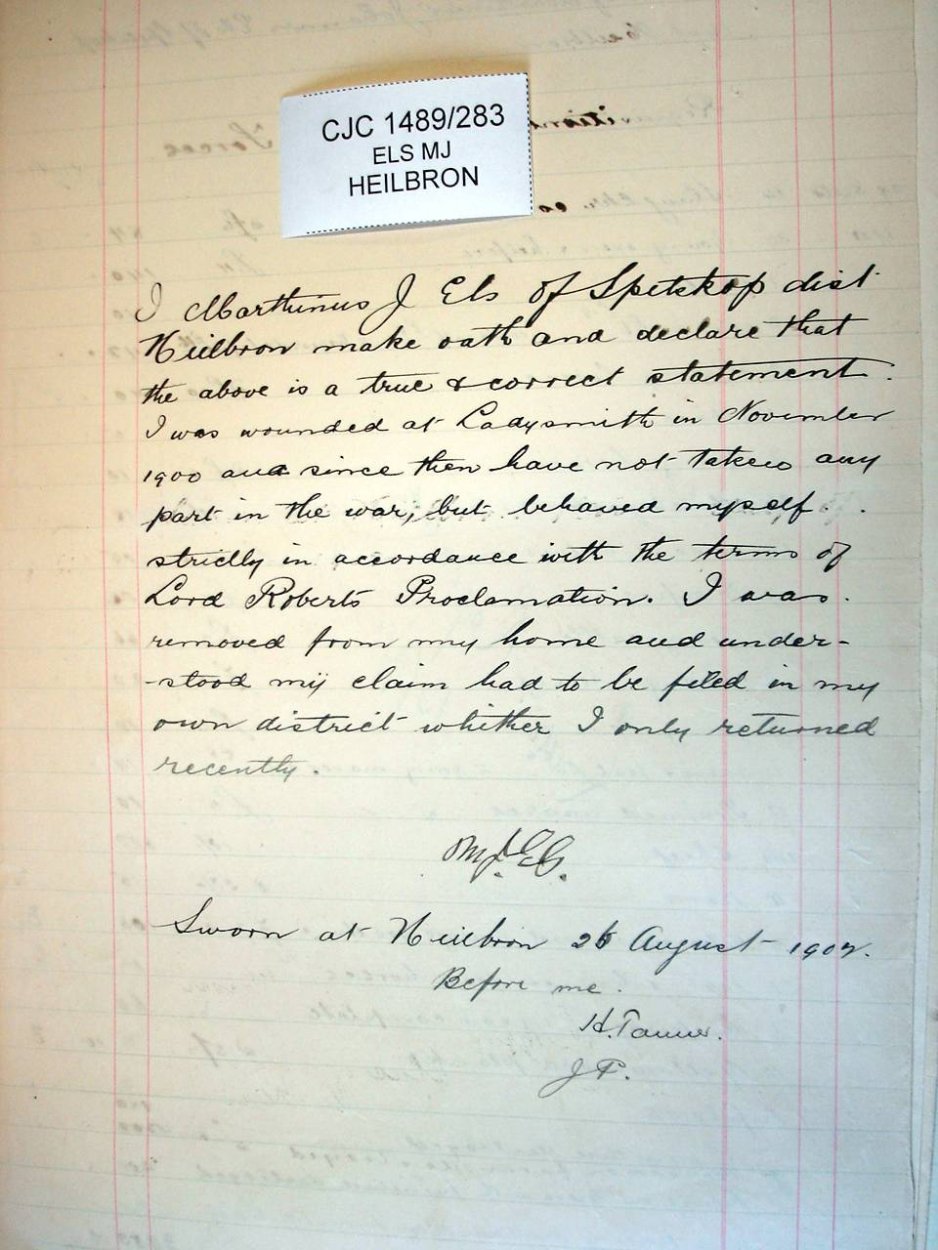 CJC 1489/283
ELS MJ
HEILBRON
I Marthinus J Els of Spitskop dist
Heilbron make oath and declare that
the above is a true & correct statement.
I was wounded at Ladysmith in November
1900 and since then have not taken any
part in the war, but behaved myself
strictly in accordance with the terms of
Lord Roberts Proclamation. I was
removed from my home and under-
-stood my claim had to be filed in my
own district whither I only returned
recently.
M.J. Els.
Sworn at Heilbron 26 August 1902.
Before me.
H. Tanner.
J P.